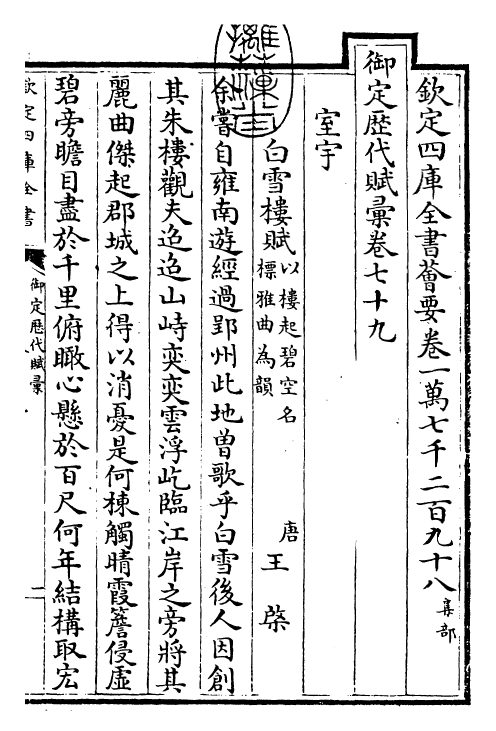 欽定四庫全書薈要卷一萬七千二百九十八 集部
御定歷代賦彙卷七十九
室宇
白雪樓賦 以樓起碧空名標雅曲為韻 唐 王棨
余嘗自雍南遊經過郢州此地曾歌乎白雪後人因創
其朱樓觀夫迢迢山峙奕奕雲浮屹臨江岸之旁將其
麗曲傑起郡城之上得以消憂是何棟觸晴霞簷侵虛
碧旁瞻目盡於千里俯瞰心懸於百尺何年結構取宏
欽定四庫全書
御定歷代賦彙